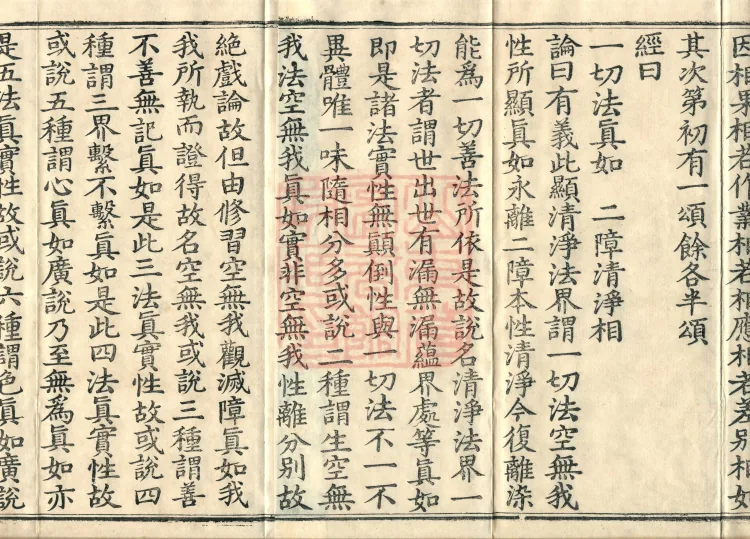 因相果相若作業相若相應相若差別相如
其次第初有一頌餘各半頌
經曰
一切法真如　二障清淨相
論曰有義此顯清淨法界謂一切法空無我
性所顯真如永離二障本性清淨今復離染
能為一切善法所依是故說名清淨法界一
切法者謂世出世有漏無漏蘊界處等真如
即是諸法實性無顛倒性與一切法不一不
異體唯一味隨相分多或說二種謂生空無
我法空無我真如實非空無我性離分別故
絕戲論故但由修習空無我觀滅障真如我
我所執而證得故名空無我或說三種謂善
不善無記真如是此三法真實性故或說四
種謂三界繫不繫真如是此四法真實性故
或說五種謂心真如廣說乃至無為真如亦
是五法真實性故或說六種謂色真如廣說